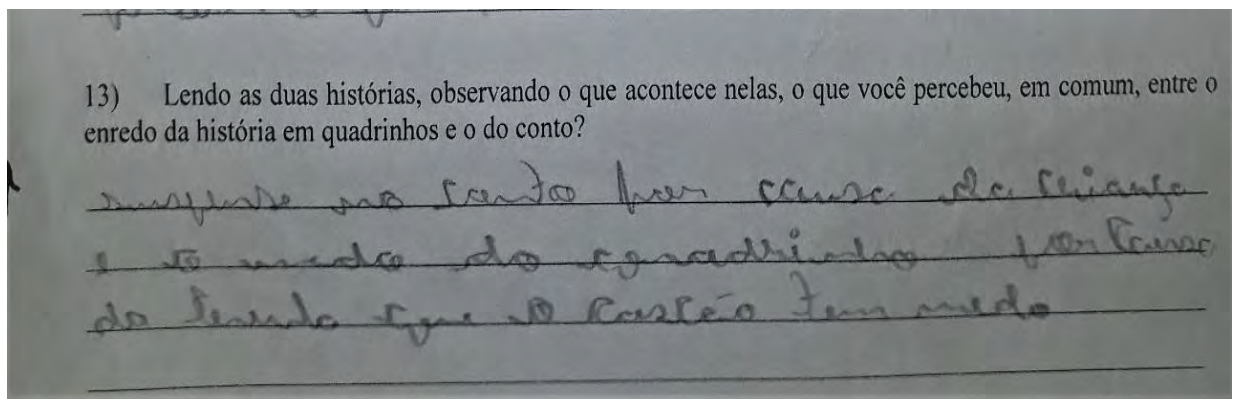 13) Lendo as duas histórias, observando o que acontece nelas, o que você percebeu, em comum, entre o
enredo da história em quadrinhos e o do conto?
suspense no conto por causa da criança
e o medo do quadrinho por causa
do que o Cascão tem medo